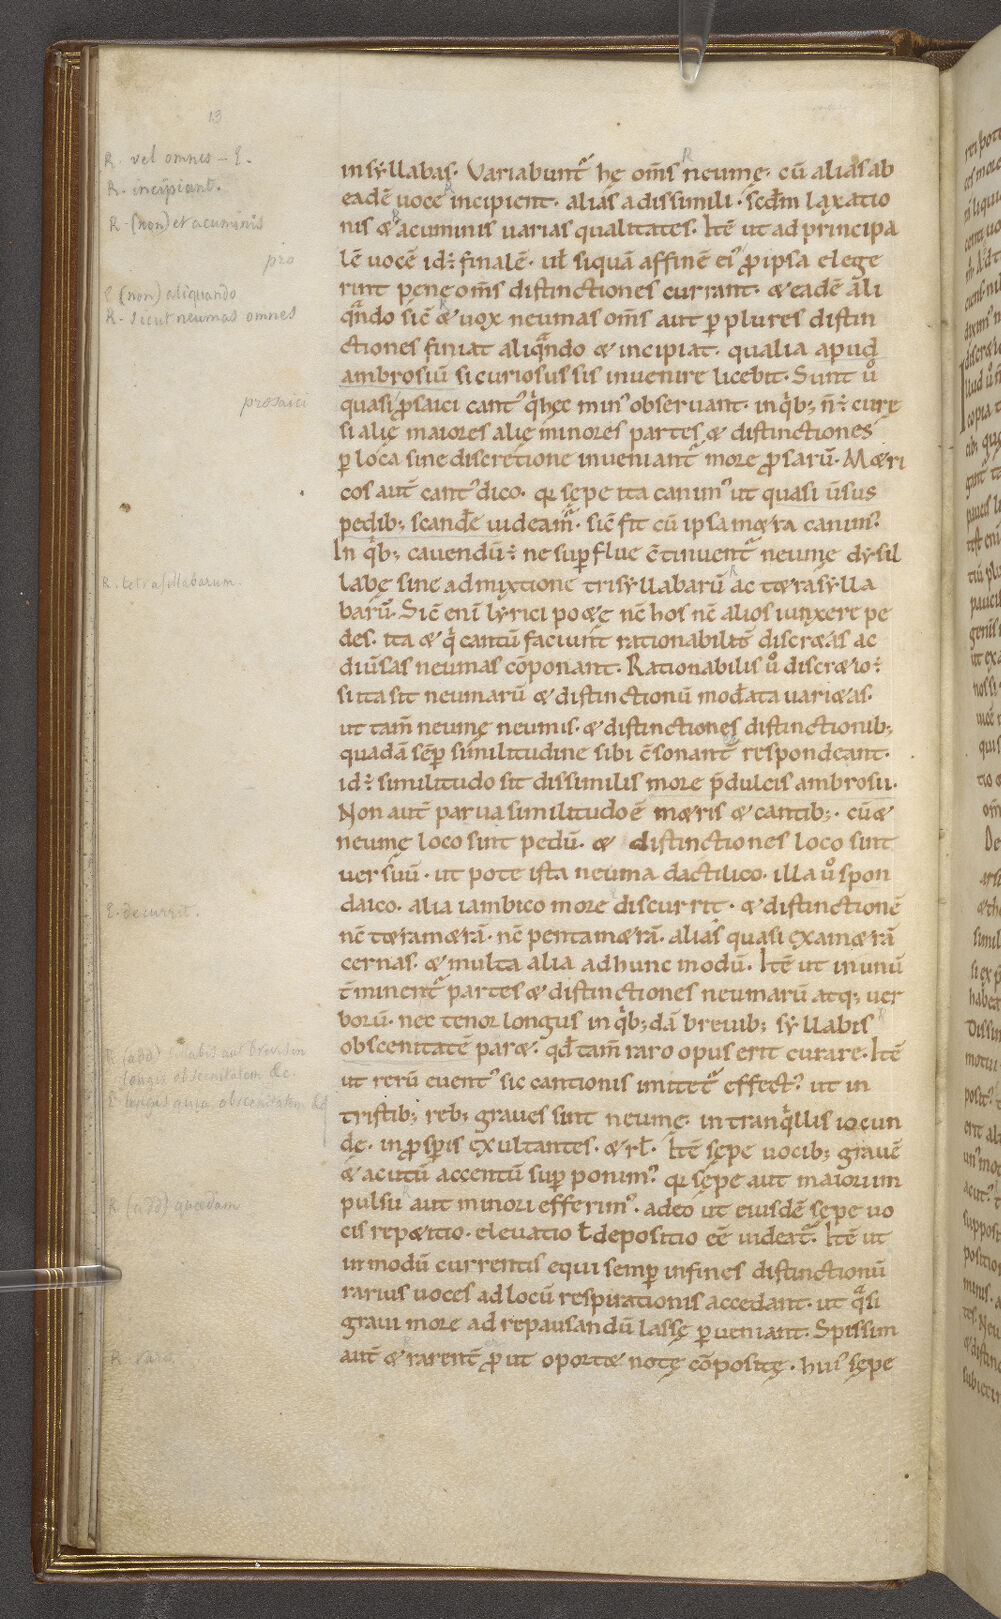 13
R. vel omnis – E.
R. incipiant.
R. (non) et acuminis
pro
E (non) aliquando
R. sicut neumas omnes
prosaici
R. tetrasillabarum.
E. decurrit.
R. (add) sillabis aut brevis in
longis obscenitatem &c.
E longis aut obscenitatem &c
R (add) quaedam
R. rari
in sẏllabas. Variabunt᷑ hę om̅s neumę. cū alias ab
eadē uoce incipient. alias a dissimili. scd̅m laxatio
nis & acuminis uarias qualitates. Itē ut ad principa
lē uocē id ÷ finalē. ul̅ siquā affinē ei᾿ ꝓ ipsa elege
rint pene om̅s distinctiones currant. & eadē ali
qͣndo sic̄ & uox neumas om̅s aut ꝑ plures distin
ctiones finiat aliqͣndo & incipiat. qualia apud
ambrosiū si curiosus sis inuenire licebit. Sunt ů
quasi ꝓsaici cant᾿ qͥ hęc min᾿ obseruant. in qͥb; n̄ ÷ curę
si alię maiores alię minores partes & distinctiones
ꝑ loca sine discretione inueniant᷑ more ꝓsarū. M&ri
cos aut̄ cant᾿ dico. qr sępe ita canim᾿ ut quasi ūsus
pedib; scand̅e uideam᷑. sic̄ fit cū ipsa m&ra canim᾿.
In qͥb; cauendū ÷ ne suꝑflue c̄tinuent᷑ neumę dẏsil
labę sine admixtione trisẏllabarū ac t&rasẏlla
barū. Sic̄ eni̅ lẏrici po&ę nc̄ hos nc̄ alios iunxere pe
des. ita & qͥ cantū faciunt rationabilit̄ discr&as ac
diūsas neumas cōponant. Rationabilis ů discr&io ÷
si ita sit neumarū & distinctionū mod̅ata uari&as.
ut tam̄ neumę neumis. & distinctiones distinctionib;
quadā sēꝑ similitudine sibi c̄sonant᷑ respondeant.
id ÷ similitudo sit dissimilis more p̄dulcis ambrosii.
Non aut̄ parua similitudo ē m&ris & cantib;. cū &
neumę loco sint pedū. & distinctiones loco sint
uersuū. ut pote ista neuma dactilico. illa ů spon
daico. alia iambico more discurrit. & distinctionē
nc̄ t&ram&rā. nc̄ pentam&rā. alias quasi exam&rā
cernas. & multa alia ad hunc modū. Itē ut in unū
t̄minent᷑ partes & distinctiones neumarū atq; uer
borū. nec tenor longus in qͥb;dā breuib; sẏllabis
obscenitatē par&. qd̅ tam̄ raro opus erit curare. Itē
ut rerū euent᾿ sic cantionis imitet᷑ effect᾿. ut in
tristib; reb; graues sint neumę. in tranqͥllis iocun
dę. in ꝓsꝑis exultantes. & rl̅. Itē sępe uocib; grauē
& acutū accentū suꝑ ponim᾿. qr sępe aut maiori im
pulsu aut minori efferim᾿. adeo ut eiusdē sępe uo
cis rep&itio. eleuatio l̅ depositio e͞e uideat᷑. Itē ut
in modū currentis equi semꝑ in fines distinctionū
rarius uoces ad locū respirationis accedant. ut qͣsi
graui more ad repausandū lassę ꝑueniant. Spissim
aut̄ & rarent᷑ ꝓ ut oport& notę cōpositę. hui᾿ sępe